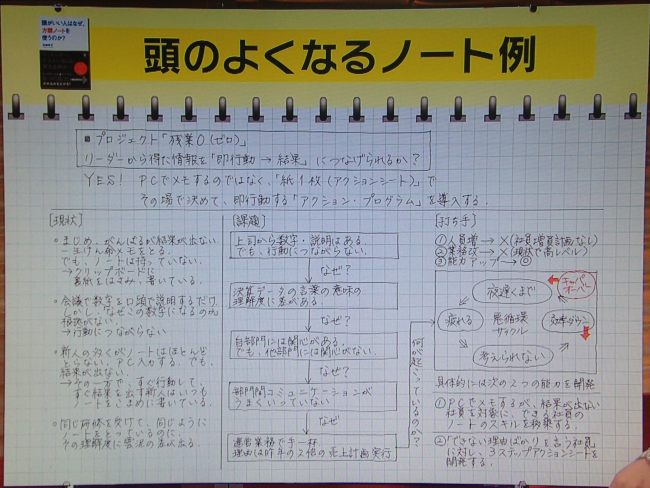 頭がいい人はなぜ、
方眼ノートを
使うのか?
頭のよくなるノート例
■プロジェクト「残業0(ゼロ)」
リーダーから得た情報を「即行動→結果」につなげられるか?
YES! PCでメモするのではなく、「紙1枚(アクションシート)」で
その場で決めて、即行動する「アクション・プログラム」を導入する。
[現状]
○まじめ、がんばるが結果が出ない
一生けん命メモをとる。
でも、ノートは持っていない。
→クリップボードに
裏紙をはさみ、書いている。
○会議で数字を口頭で説明するだけ
しかし、「なぜこの数字になるのか」
→行動につながらない
○新人の多くがノートはほとんど
とらない。PC入力する。でも、
結果が出ない。
→その一方で、すぐ行動して、
すぐ結果を出す新人はいつも
ノートをこまめに書いている。
○同じ研修を受けて、同じように
ノートをとっているのに
その理解度に雲泥の差が出る。
[課題]
上司から数字・説明はある。
でも、行動につながらない。
なぜ?
決算データの言葉の意味の
理解度に差がある。
なぜ?
自部門には関心がある。
でも、他部門には関心がない。
なぜ?
部門間コミュニケーションが
うまくいっていない
なぜ
運営業務で手一杯
理由は昨年の2倍の売上計画実行
何が起こっているのか?
[打ち手]
①人員増→×(社員増員計画なし)
②業務改→×(現状で高レベル)
③能力アップ→◎
夜遅くまで
キャパオーバー
疲れる
悪循環
サイクル
効率ダウン
考えられない
具体的には次の2つの能力を開発
①PCでメモするが、結果が出ない
社員を対象に、できる社員の
ノートのスキルを移築する。
②「できない理由ばかりを言う社員
に対し、3ステップアクションシートを
開発する。